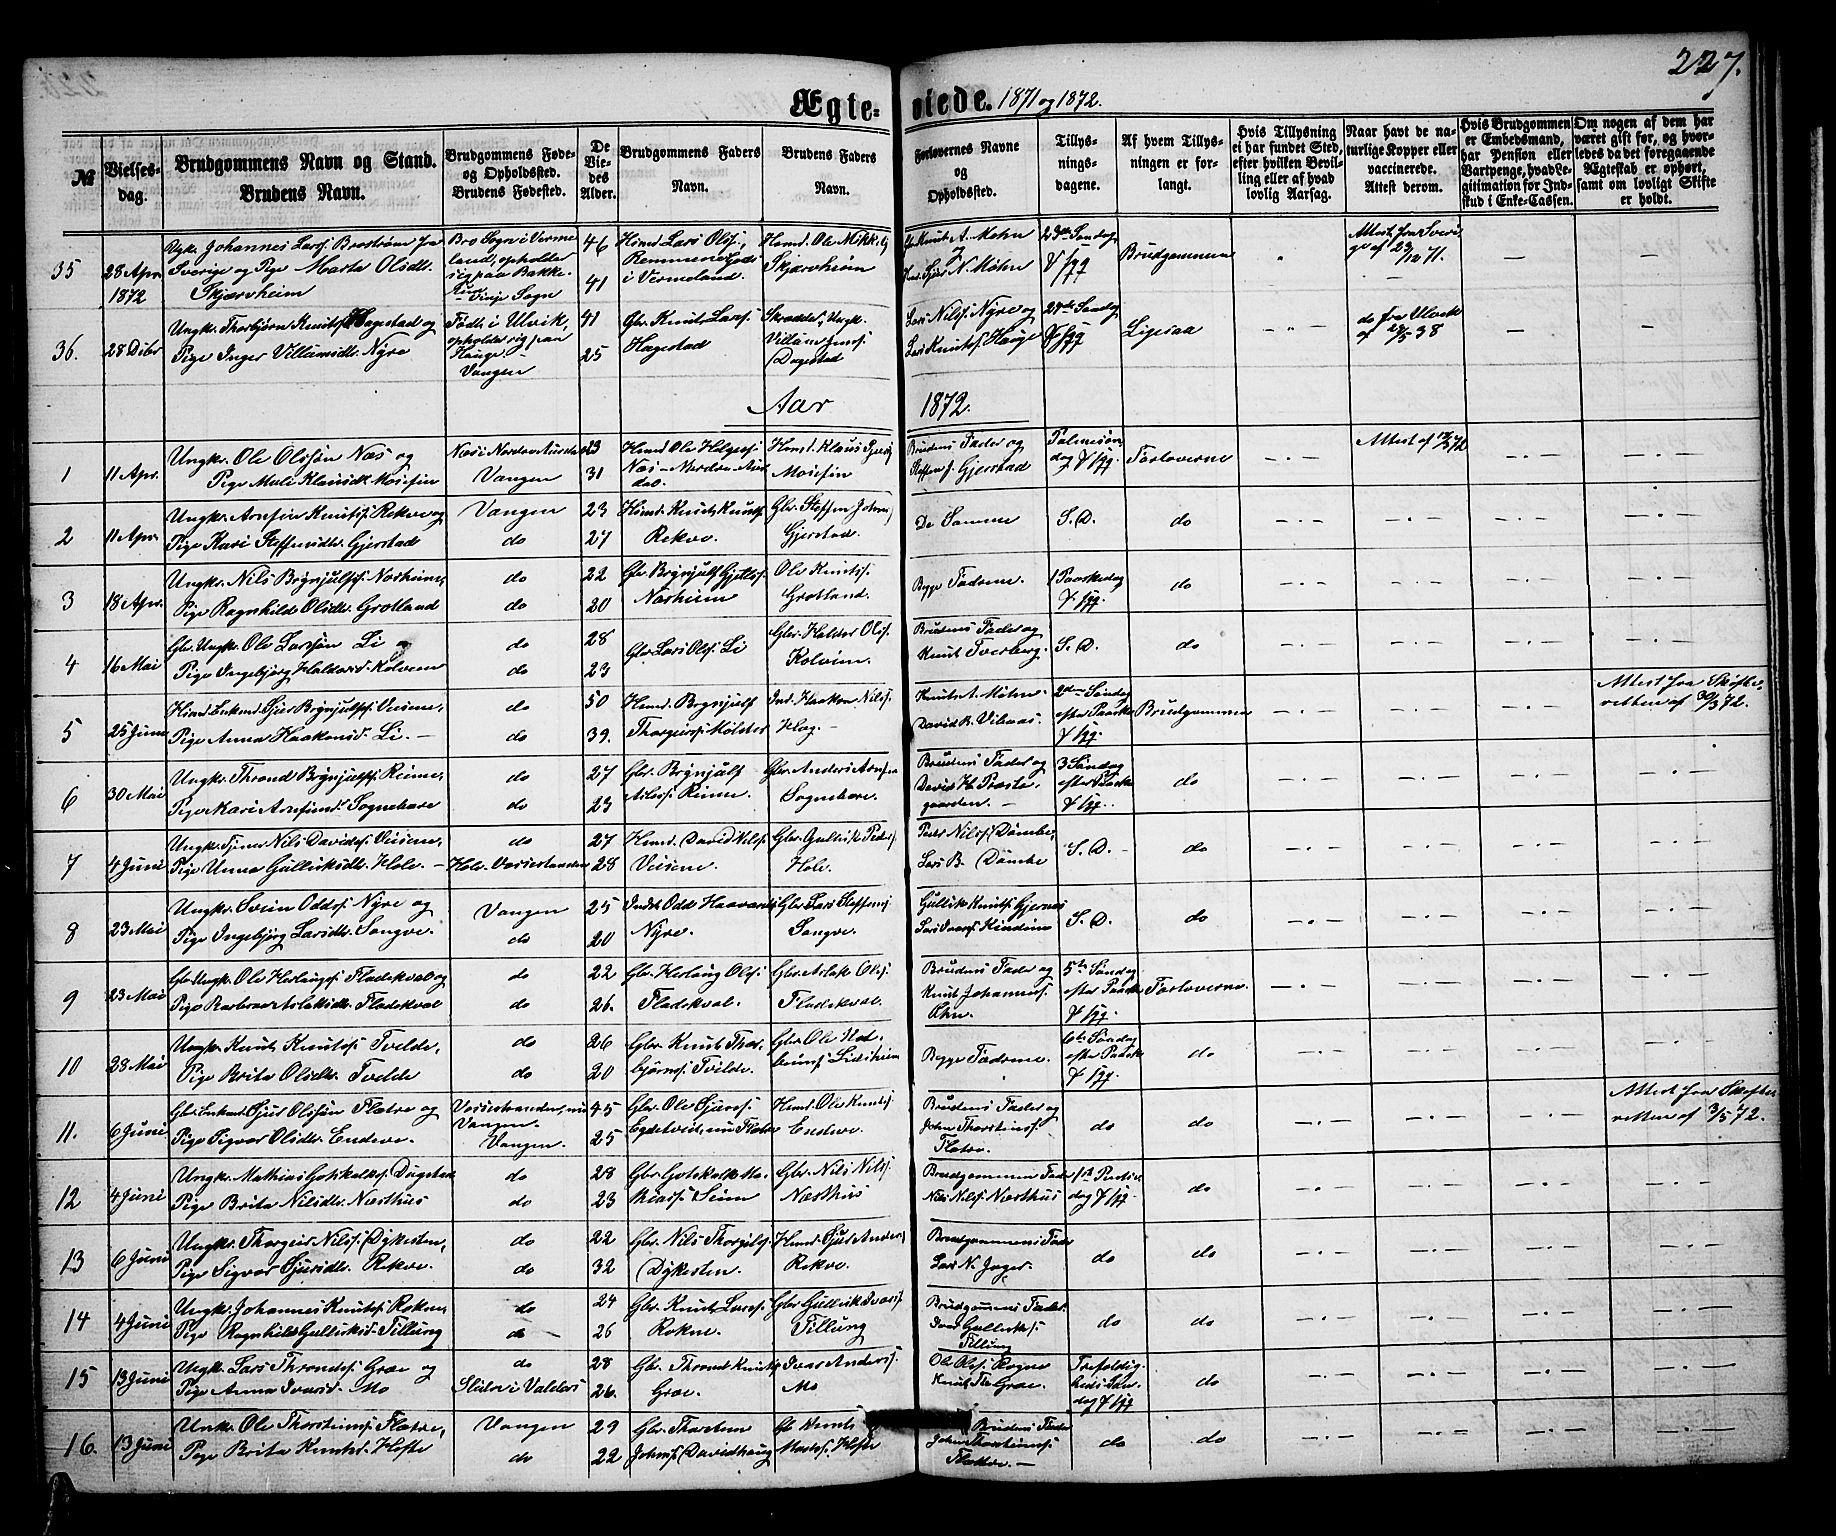 227.
Ægteviede. 1871 og 1872.
№
Vielsesdag.
Brudgommens Navn og Stand.
Brudens Navn.
Brudgommens Føde- og Opholdssted.
Brudens Fødested.
De Viedes Alder.
Brudgommens Faders Navn.
Brudens Faders Navn.
Forlovernes Navne og Opholdssted.
Tillysningsdagene.
Af hvem Tillysningen er forlangt.
Hvis Tillysning ei har fundet Sted, efter hvilken Bevilling eller af hvad lovlig Aarsag.
Naar havt de naturlige Kopper eller vaccinerede. Attest derom.
Hvis Brudgommen er Embedsmand, har Pension eller Vartpenge, hvad Legitimation for Indskud i Enke-Cassen.
Om nogen af dem har været gift før, og hvorledes da det foregaaende Ægteskab er ophørt, samt om lovligt Skifte er holdt.
35 28 Apr. 1872
Ungk. Johannes Larss. Broström fra
Sverige og Pige Marta Olsdtr.
Skjærvheim
Bro Sogn i Vermeland, opholder sig paa Bakke
Vinje Sogn
46
41
Himd. Lars Olss.,
i Vermeland
Himd. Ole Mikkels.
Skjærvheim
Knut A. Møhn
N. Møhn
23de Søndag
Brudgommen
Attest fra Sverige af 23/10 71.
36. 28 Dcbr
Ungk. Thorbjørn Knuts. Hagestad og
Pige Inger Villumsdtr. Nyre
Født i Ulvik,
opholder sig paa
Hauge
Vangen
41
25
Gbr. Knut Larss.
Hagestad
Ungk.
Villum Jons.
Dagestad
Lars Nilss. Nyre og
Lars Knutss. Hauge
24de Søndag
Ligesaa
do fra Ulvik
af 27/5 38
Aar 1872.
1 11 Apr.
Ungk. Ole Olssøn Næs og
Pige Mali Klausdtr. Mosefin
Næs i Nordre Aurdal
Vangen
23
31
Himd. Ole Helgess.
Næs - Nordre Aurdal.
Himd. Klaus
Mosefin
Brudens Fader og
Steffen J. Gjerstad
Palmesøndag & flgg.
Forloverne
Attest af 12/3 72
2 11 Apr.
Ungk. Arnfin Knutss. Rekve og
Pige Kari Steffensdtr. Gjerstad
Vangen
do
23
27
Himd. Knut Knutss.
Rekve.
Gbr. Steffen Johns.
Gjerstad.
De Samme
S.D.
do
3 18 Apr.
Ungk. Nils Brynjulfss. Norheim,
Pige Ragnhild Olsdtr. Grotland
do
do
22
20
Gbr. Brynjulf
Norheim
Ole Knutss.
Grotland.
Begge Fædrene.
1 Paaskedag & flgg.
do
4 16 Mai
Gbr. Ungk. Ole Larssøn Li og
Pige Ingebjørg Haldorsd. Kolveim
do
do
28
23
Gbr Lars Olss. Li
Gbr. Haldor Olss.
Kolveim.
Brudens Fader og
Knut Tverberg.
S.D.
do
5 25 Juni
Himd. Enkemd. Sjur Brynjulfss. Veisene,
Pige Anna Haakensd. Li.
do
do
50
39.
Himd. Brynjulf
Thorgeirss. Mølster
Ind. Haaken Nilss.
Knut A. Møhn.
David R. Vikøas.
2den Søndag
efter Paaske
& flgg.
Brudgommen
Attest fra Skifteretten af 30/3 72.
6 30 Mai
Ungk. Thrond Brynjulfss. Reime,
Pige Kari Arnfinsd. Sognehare
do
do
27
23
Gbr. Brynjulf
Reime.
Gbr. Anders Arnfins.
Sognehare.
Brudens Fader og
David H. Præstegaarden.
3 Søndag
efter Paaske
& flgg.
do
7 4 Juni
Ungk. Tjener Nils Davidss. Veisene,
Pige Unna Gulliksdtr. Hole.
do
Hole Vossestranden
27
28
Himd. David Nilss.
Veisene.
Gbr. Gullik Peders.
Hole.
Peder Nilss. Dømbe,
Lars B. Dømbe
S.D.
do
8 23 Mai
Ungk. Svein Oddss. Nyre og
Pige Ingebjørg Larsdtr. Songve.
Vangen
do
25
20
Indst. Odd Haavards.
Nyre.
Gbr. Lars Steffens.
Songve.
Gullik Knutss. Gjernes
Lars
S.D.
do
9 23 Mai
Gbr. Ungk. Ole Herlaugs. Fladekval og
Pige Barbro Aslaksdtr. Fladekval
do
do
22
26.
Gbr. Herlaug Olss.
Fladekval.
Gbr. Aslak Olss.
Fladekval.
Brudens Fader og
Knut Johanness.
5te Søndag
efter Paaske
& flgg.
Forloverne
10 28 Mai
Ungk. Knut Knutss. Tvilde,
Pige Brita Olsdtr. Tvilde
do
do
26
20
Gbr. Knut Thorbjørns. Tvilde.
Gbr. Ole
Lidsheim
Begge Fædrene.
6te Søndag
efter Paaske
& flgg.
do
11. 6 Juni
Gbr. Enkemd. Sjur Olssøn Flatre og
Pige Sigvor Olsdtr. Endeve.
Vossestranden, nu
Vangen.
Vangen.
45
25
Gbr. Ole Sjurss.
nu Flatre
Himd. Ole Knutss.
Endeve.
Brudens Fader og
John Thorsteinss.
Flatre.
do
do
Attest fra Skifteretten af 3/5 72.
12 4 Juni
Ungk. Mathias Gotskalkss. Dugstad
Pige Brita Nilsdtr. Næsthus
do
do
28
23
Gbr. Gotskalk Mathiass. Seim
Gbr. Nils Nilss.
Næsthus
Brudgommens Fader
Nils Nilss. Næsthus
1st Pintsedag & flgg.
do
13 6 Juni
Ungk. Thorgeir Nilss. Dykesten,
Pige Sigvor Sjursdtr. Rekve.
do
do
22
32
Gbr. Nils Thorgilss.
Dykesten.
Himd. Sjur Anders.
Rekve.
Brudgommens Fader
Lars N. Jøger
do
do
14 4 Juni
Ungk. Johannes Knutss. Rokne,
Pige Ragnhild Gulliksd. Tillung
do
do
24
26
Gbr. Knut Larss.
Rokne.
Gbr. Gullik Ivarss.
Tillung
Brudgommens Fader
Ivar Gullikss.
Tillung
do
do
15 13 Juni
Ungk. Lars Throndss. Græe og
Pige Anna Ivarsd. Mo
do
Slidre i Valders
28
26.
Gbr. Thrond Knutss.
Græe.
Ivar Anderss.
Mo
Ole Olss. Rogne
Knut Th. Græe.
Trefoldighedssøndag & flgg
do
16. 13 Juni
Ungk. Ole Thorsteinss. Flatre,
Pige Brita Knutsd. Hefte
Vangen
do
29
22
Gbr. Thorstein
Johnss. Davidhaug
Knut
Hefte
Brudens Fader
John Thorsteinss.
Flatre.
do
do